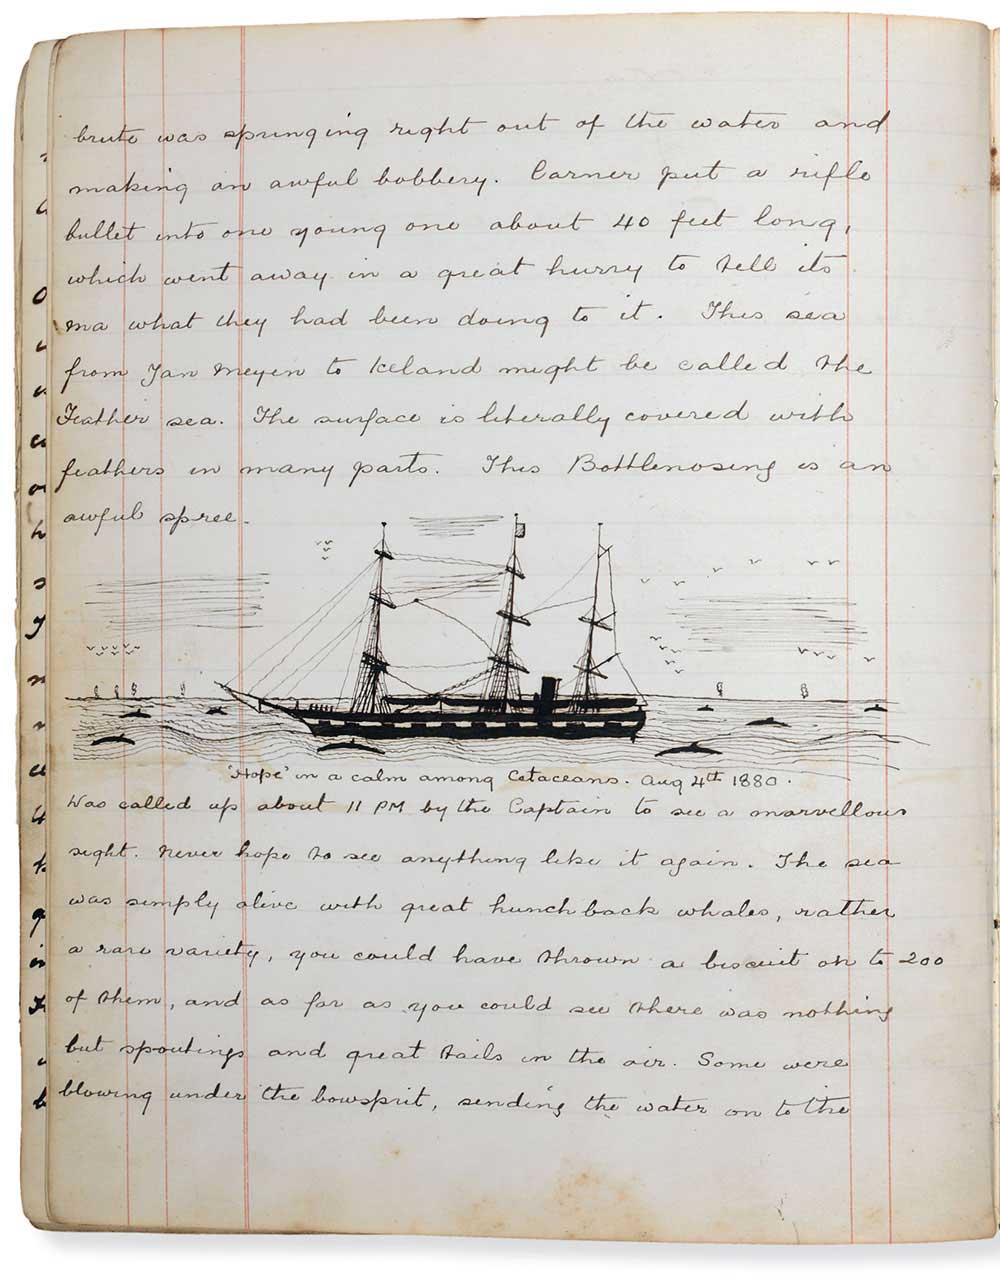 brute was springing right out of the water and
making an awful bobbery. Carner put a rifle
bullet into one young one about 40 feet long,
which went away in a great hurry to tell its
ma what they had been doing to it. This sea
from Jan Meyen to Iceland might be called the
Feather sea. The surface is literally covered with
feathers in many parts. This Bottlenosing is an
awful spree.
'Hope' in a calm among Cetaceans. Aug 4th 1880.
Was called up about 11 PM by the Captain to see a marvellous
sight. Never hope to see anything like it again. The sea
was simply alive with great hunchback whales, rather
a rare variety, you could have thrown a biscuit on to 200
of them, and as far as you could see there was nothing
but spoutings and great tails in the air. Some were
blowing under the bowsprit, sending the water on to the